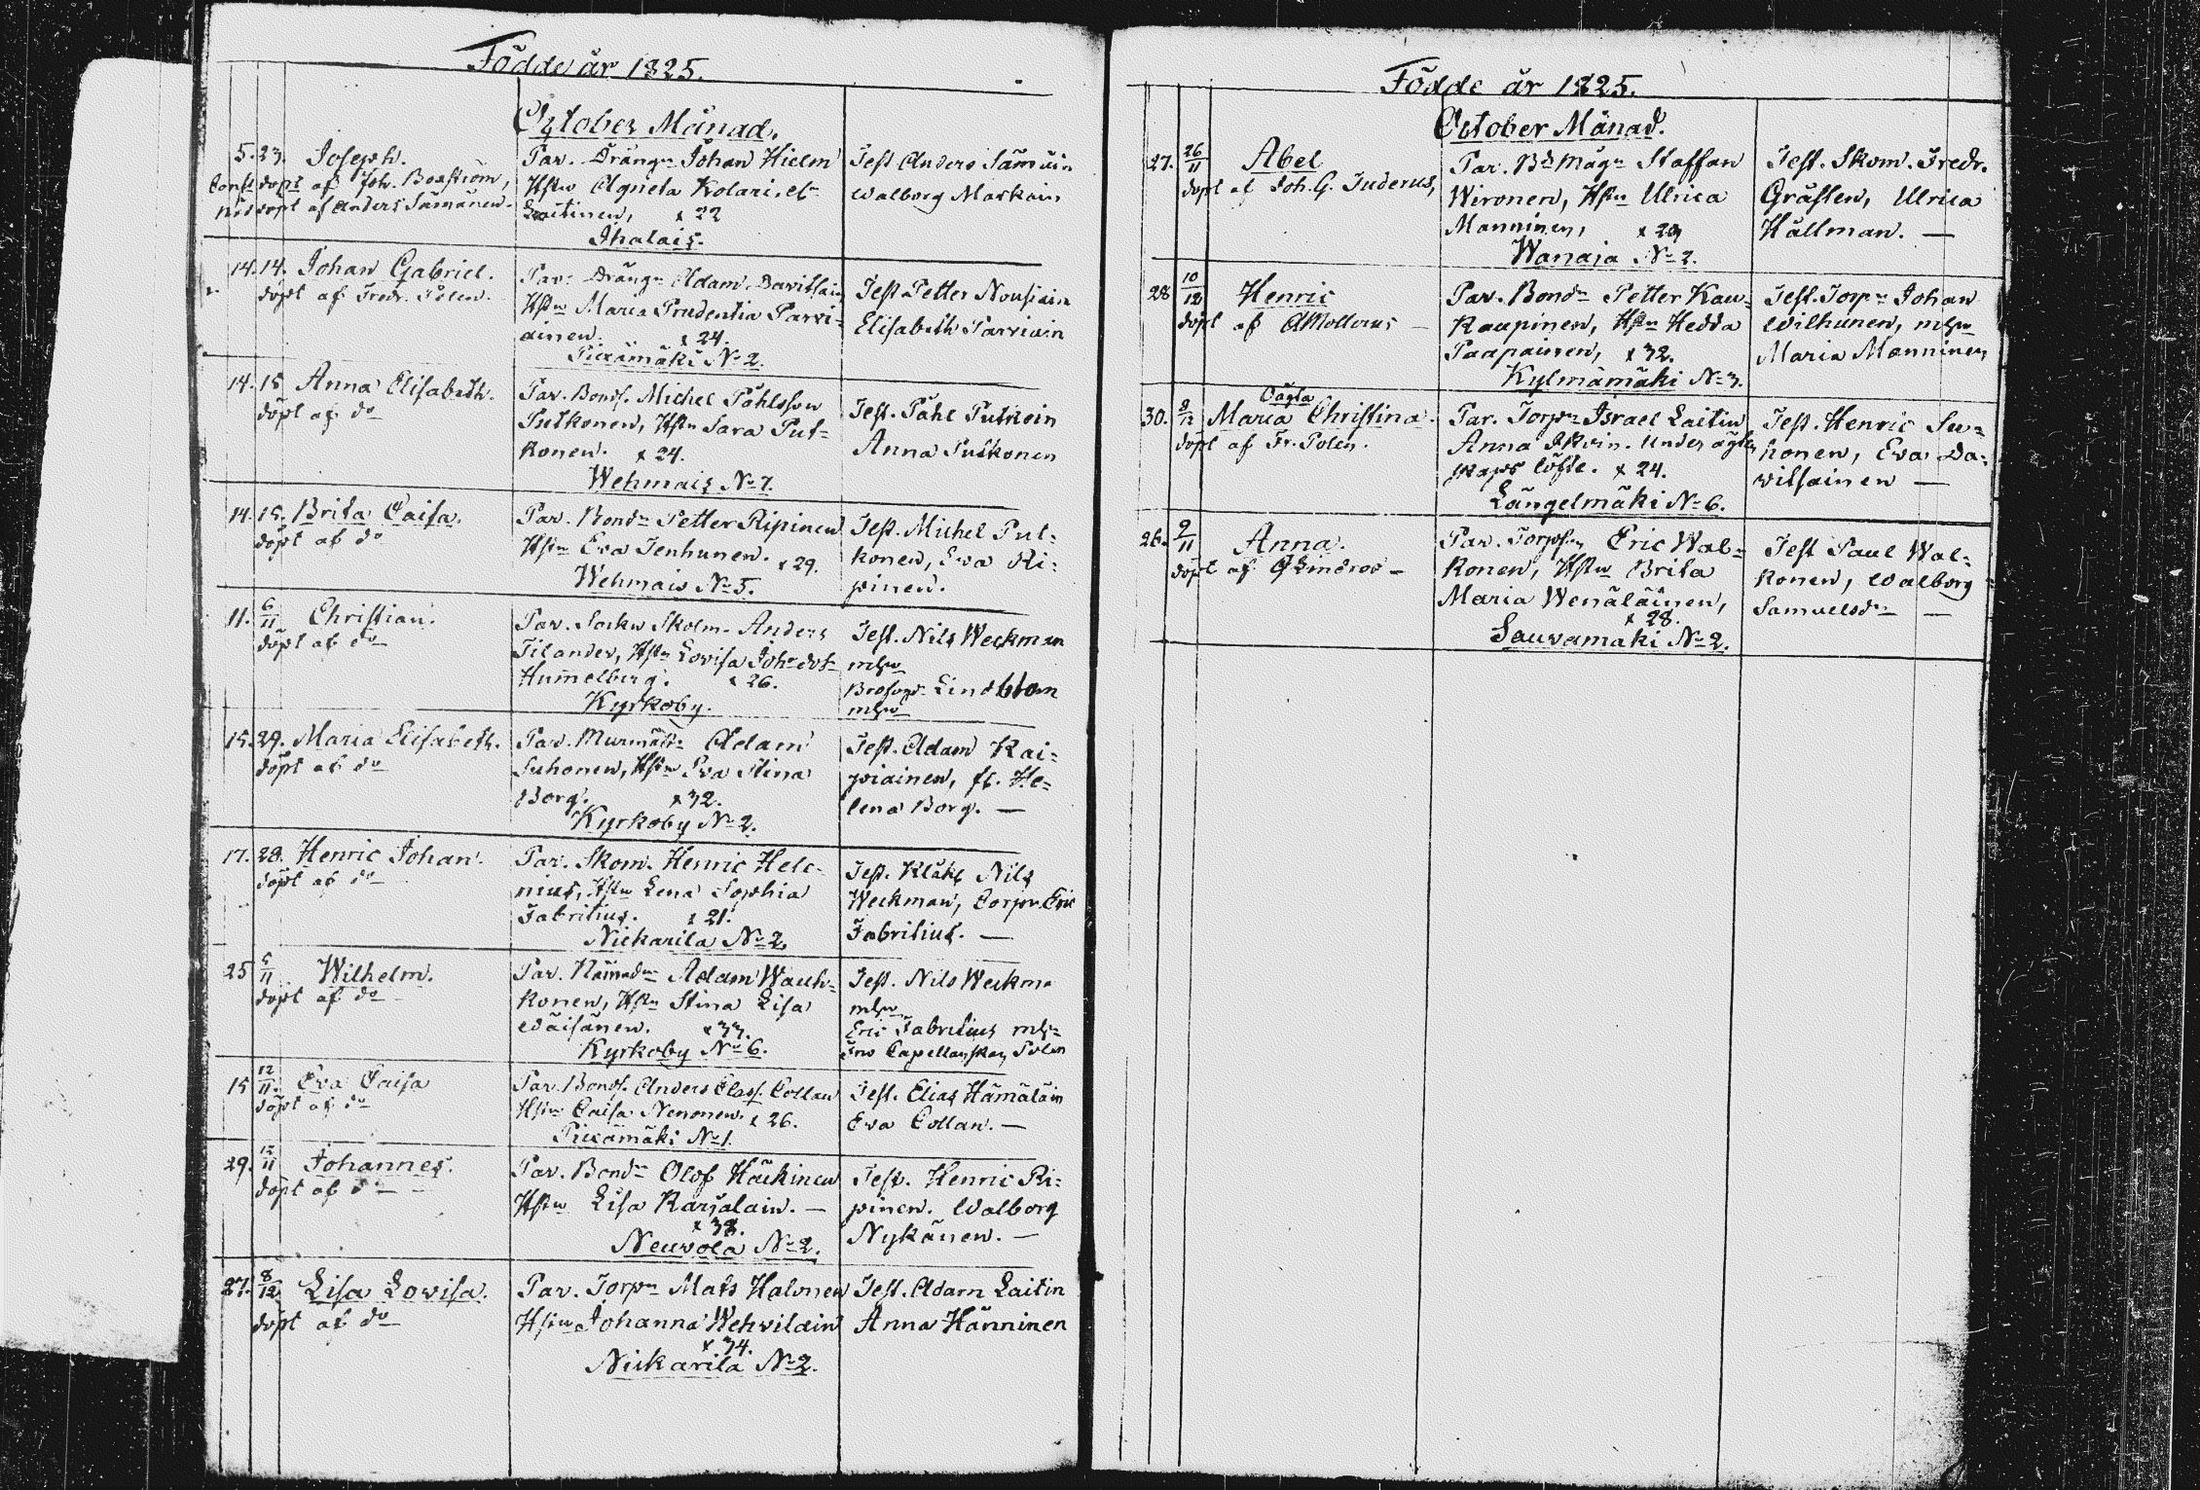 Födde år 1825.
October Månad.
5. 23. Joseph.
Conft. döpt af Joh. Boström,
nöddöpt af Anders Sämänen.
Par. Drängn Johan Hielm
Hstru Agneta Kolari, et
Laitinen, x 22
Ihalais.
Test Anders Sämäin
Walborg Maskain
14. 14. Johan Gabriel.
döpt af Fredr. Polen.
Par. Drängn Adam Davitsain
Hstru Maria Prudentia Parvi=
ainen. x 24.
Piexämäki No 2.
Test Petter Nousiain
Elisabeth Parviain
14. 15 Anna Elisabeth.
döpt af do
Par. Bonds. Michel Påhlsson
Putkonen, Hstru Sara Put=
konen. x 24.
Wehmais No 7.
Test. Påhl Putkoin
Anna Putkonen
14. 15. Brita Caisa.
döpt af do
Par. Bondn Petter Ripinen
Hstru Eva Tenhunen. x 29.
Wehmais No 5.
Test. Michel Put=
konen, Eva Ri=
pinen.
11. 6/11 Christian.
döpt af do
Par. Sockn Skolm. Anders
Tilander, Hstru Lovisa Johsdot=
Hummelberg. x 26.
Kyrkoby.
Test. Nils Weckman
mhu
Brofogd. Lindblom
mhu
15. 29. Maria Elisabeth.
döpt af do
Par. Murmäst. Adam
Suhonen, Hstru Eva Stina
Borg. x 32.
Kyrkoby No 2.
Test. Adam Kai=
piainen, fl. He=
lena Borg. —
17. 28. Henric Johan.
döpt af do
Par. Skom. Henric Hele=
nius, Hstru Lena Sophia
Fabritius. x 21.
Nickarila No 2.
Test. Klåk. Nils
Weckman, Corpr. Eric
Fabritius. —
25 5/11 Wilhelm.
döpt af do
Par. Nämndm Adam Wauh=
konen, Hstru Stina Lisa
Wäisänen. x 33.
Kyrkoby No 6.
Test. Nils Weckma
mhu
Eric Fabritius mh=
Fru Capellanskan Polen
15 12/11. Eva Caisa
döpt af do
Par. Bonds. Anders Class. Collan
Hstru Caisa Nenonen. x 26.
Piexämäki No 1.
Test. Elias Hämäläin
Eva Collan. —
29. 12/11 Johannes.
döpt af do
Par. Bondn Olof Häckinen
Hstru Lisa Karjalain. —
x 38.
Neuvola No 2.
Test. Henric Ri=
pinen. Walborg
Nykänen. —
27. 8/12 Lisa Lovisa.
döpt af do
Par. Torpn Mats Halonen
Hstru Johanna Wehviläin
x 34.
Nickarila No 2.
Test. Adam Laitin
Anna Hänninen
Födde år 1825.
October Månad.
27. 26/11 Abel
döpt af Joh. G. Inderus,
Par. Bd Mågn Staffan
Wironen, Hstru Ulrica
Manninen, x 29
Wanaja No 2.
Test. Skom. Fredr.
Gråsten, Ulrica
Hällman. —
28 10/12 Henric
döpt af AMollerus —
Par. Bondn Petter Kau=
Kaupinen, Hstru Hedda
Paapainen, x 32.
Kylmämäki No 3.
Test. Torpn Johan
Wilhunen, mhu
Maria Manninen
30. 9/12 Oägta
Maria Christina.
döpt af Fr. Polen.
Par. Torpn Israel Laitin
Anna Ikoin. Under ägten
skaps löfte. x 24.
Längelmäki No 6.
Test. Henric Su=
honen, Eva Da=
vitsainen —
26. 9/11 Anna.
döpt af
Par. Torps. Eric Wal=
konen, Hstru Brita
Maria Wenäläinen,
x 28.
Sauvamäki No 2.
Test Paul Wal=
konen, Walborg
Samuelsdr —